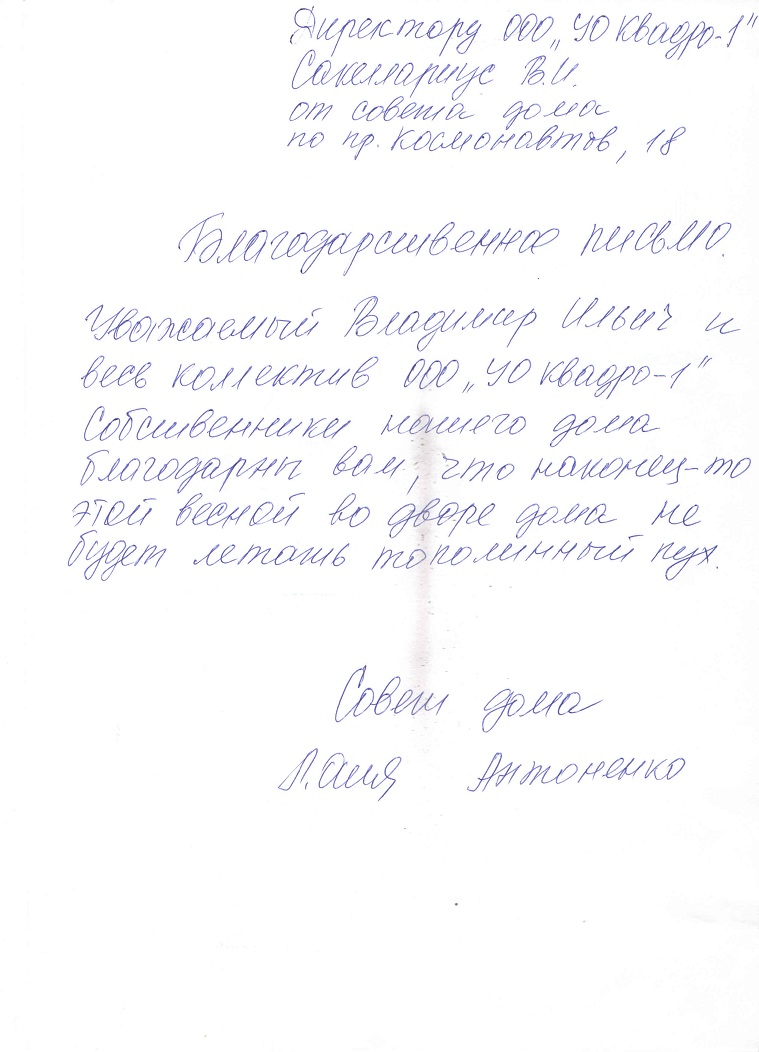 Директору ООО „УО Квадро-1"
Сакеллариус В.И.
от совета дома
по пр. Космонавтов, 18
Благодарственное письмо.
Уважаемый Владимир Ильич и
весь коллектив ООО „УО Квадро-1"
Собственники нашего дома
благодарны вам, что наконец-то
этой весной во дворе дома не
будет летать тополинный пух.
Совет дома
Антоненко